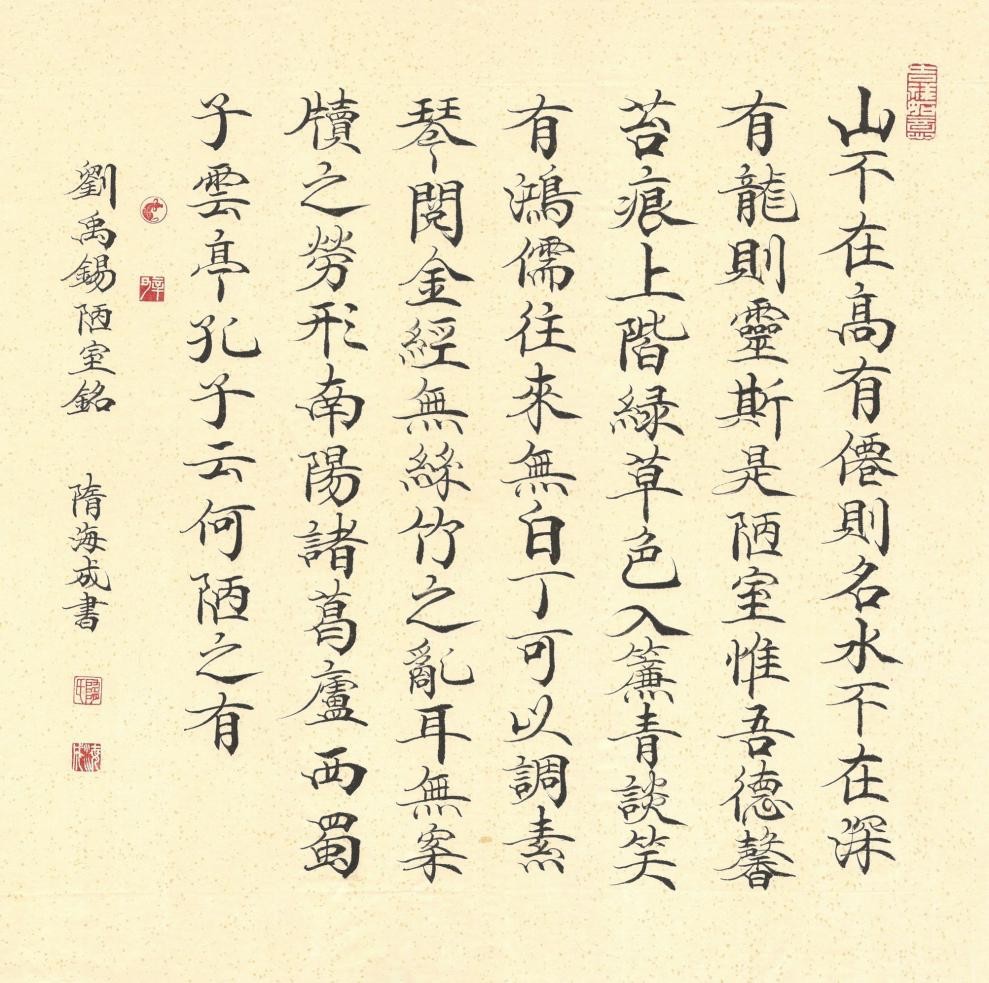 吉祥如意
山不在髙有僊則名水不在深
有龍則靈斯是陋室惟吾德馨
苔痕上階緑草色入簾青談笑
有鴻儒往來無白丁可以調素
琴閲金經無絲竹之亂耳無案
牘之勞形南陽諸葛廬西蜀
子雲亭孔子云何陋之有
劉禹錫陋室銘 隋海成書